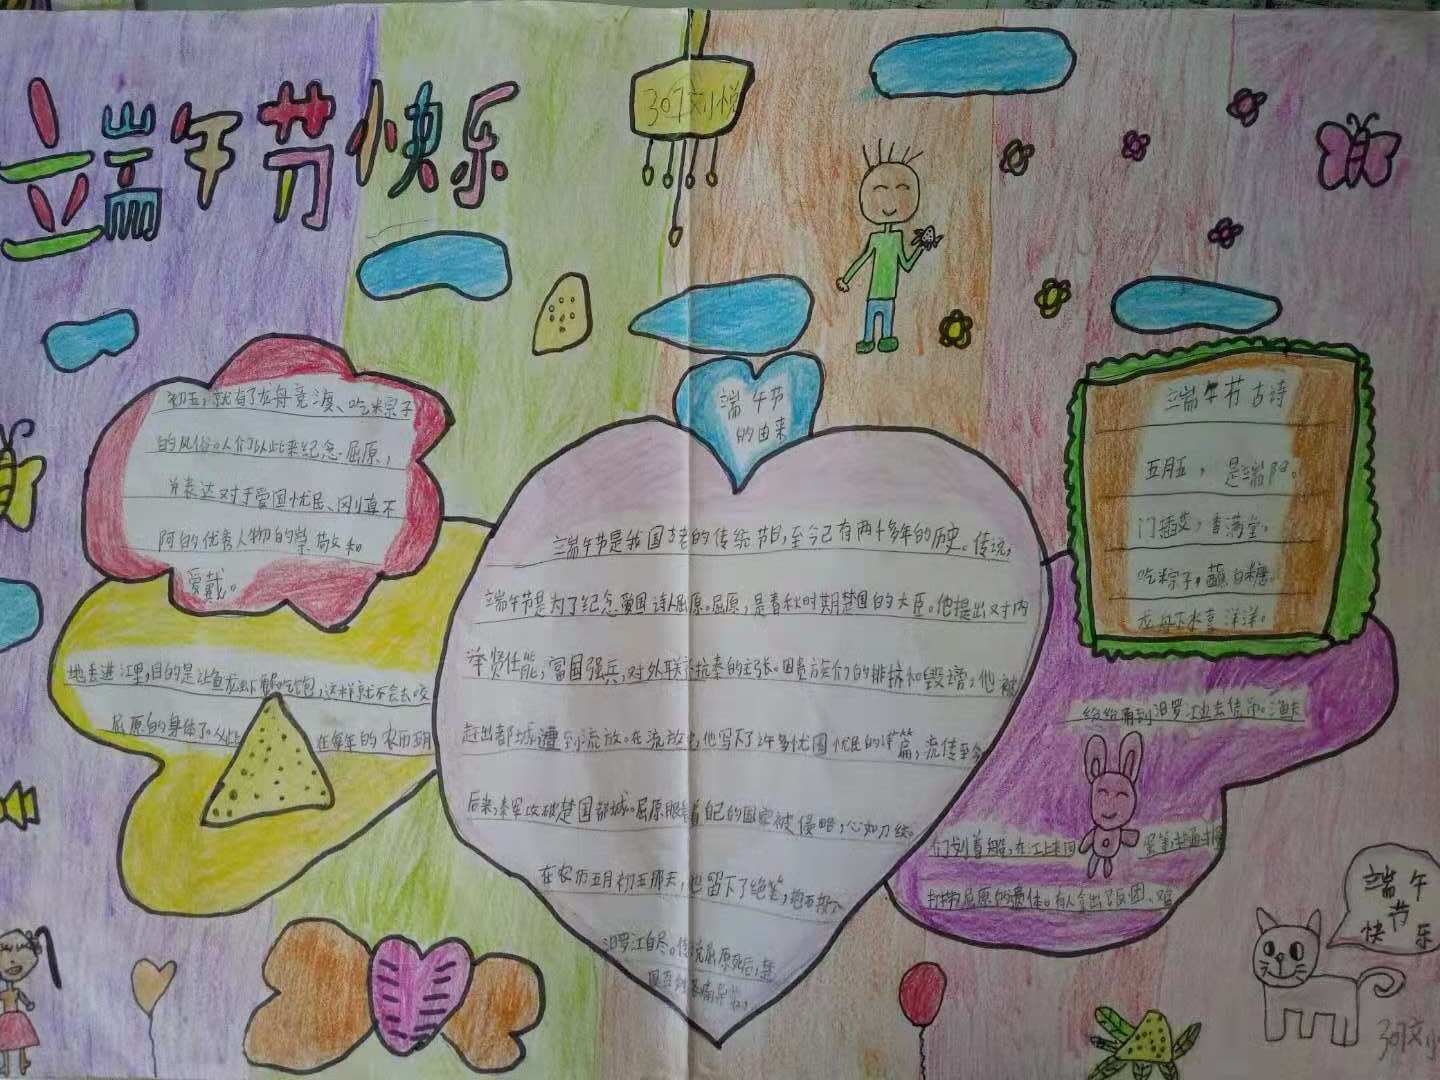 端午节快乐
307文小悦
端午节
的由来
端午节是我国古老的传统节日,至今已有两千多年的历史。传说,
端午节是为了纪念爱国诗人屈原。屈原,是春秋时期楚国的大臣。他提出对内
举贤任能,富国强兵,对外联齐抗秦的主张。因贵族们的排挤和毁谮,他被
赶出都城,遭到流放。在流放中,他写下了许多忧国忧民的诗篇,流传至今
后来,秦军攻破楚国都城。屈原眼看着自己的国家被侵略,心如刀绞。
在农历五月初五那天,他留下了绝笔,抱石投入
汨罗江自尽。传说屈原死后,楚
国百姓哀痛异常,
纷纷涌到汨罗江边去凭吊。渔夫
们划着船,在江上来回
打捞屈原的遗体。有人拿出饭团、鸡
地丢进江里,目的是让鱼龙虾蟹吃饱,这样就不会去咬
屈原的身体了。从此 在每年的农历五月
初五,就有了龙舟竞渡、吃粽子
的风俗。人们以此来纪念屈原,
并表达对于爱国忧民、刚真不
阿的优秀人物的崇敬和
爱戴。
端午节古诗
五月五,是端阳。
门插艾,香满堂。
吃粽子,蘸白糖。
龙舟下水喜洋洋。
端午
节
快乐
307文小